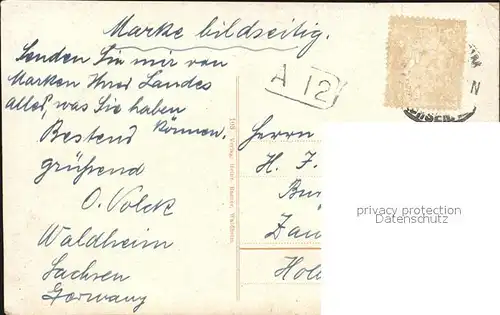 Marke bildseitig.
Senden Sie mir von
Marken Ihres Landes
alles, was Sie haben
können.
Bestend
grüßend
O. Volck
Waldheim
Sachsen
Germany
A 12
N
Herrn
H. F.
Hol
privacy protection
Datenschutz